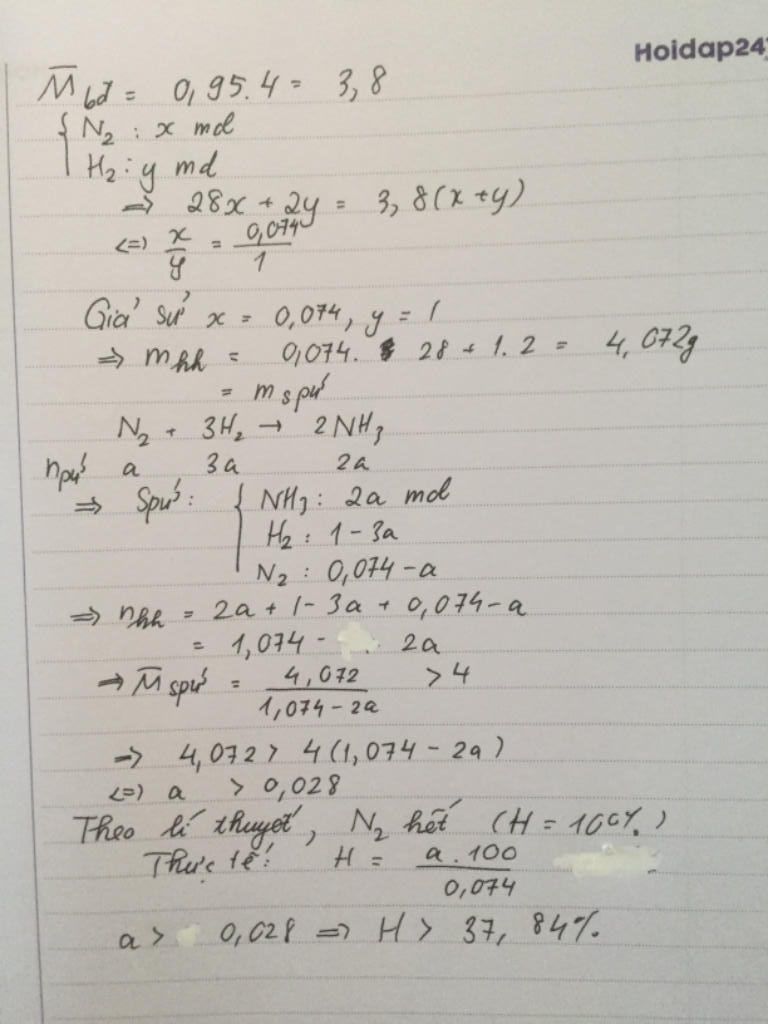 Hoidap247
M̅bđ = 0,95.4 = 3,8
{ N₂ : x mol
H₂ : y mol
=> 28x + 2y = 3,8(x+y)
<=> x/y = 0,074/1
Giả sử x = 0,074, y = 1
=> mhh = 0,074. 28 + 1.2 = 4,072g
= mspứ
N₂ + 3H₂ → 2NH₃
npứ a 3a 2a
=> Spứ: { NH₃: 2a mol
H₂ : 1-3a
N₂ : 0,074-a
=> nhh = 2a + 1-3a + 0,074-a
= 1,074 - 2a
=> M̅spứ = 4,072/(1,074-2a) > 4
=> 4,072 > 4(1,074-2a)
<=> a > 0,028
Theo lí thuyết, N₂ hết (H = 100%)
Thực tế: H = a.100/0,074
a > 0,028 => H > 37,84%.